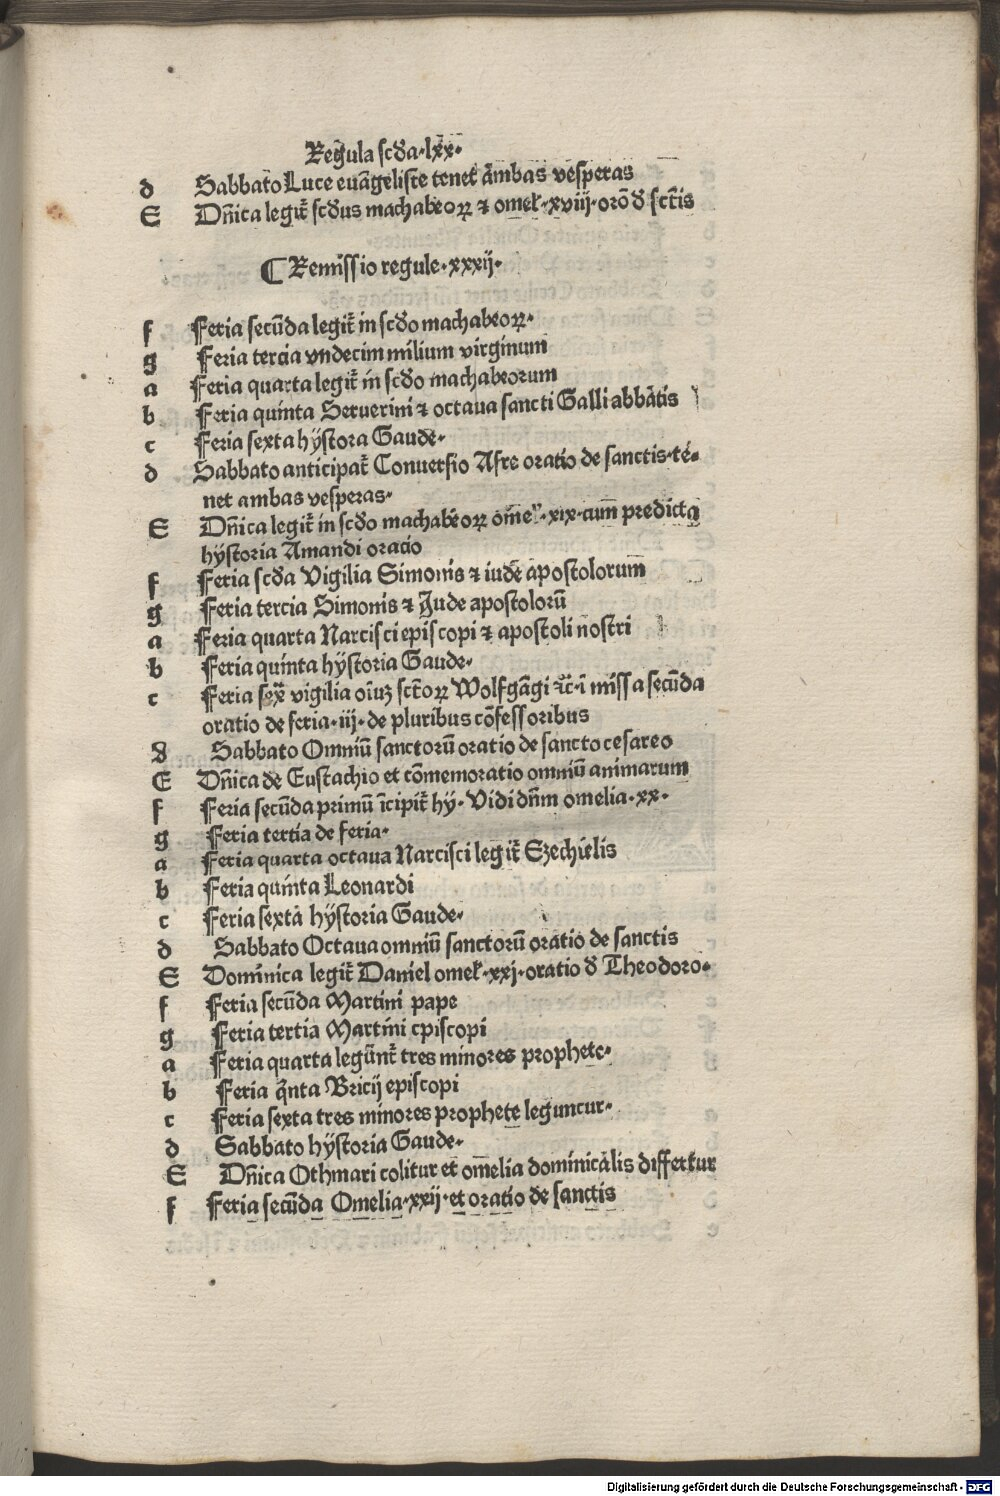 Regula scđa·lxx·
d Sabbato Luce euāgeliste tenet̄ ambas vesperas
E Dn̄ica legit̄ scđus machabeoꝝ ⁊ omel̄·xviij·orō đ sct̄is
¶ Remissio regule·xxxij·
f Feria secūda legit̄ in scđo machabeoꝝ·
g Feria tercia vndecim milium virginum
a Feria quarta legit̄ in scđo machabeorum
b Feria quinta Seruerini ⁊ octaua sancti Galli abbatis
c Feria sexta hystora Gaude·
d Sabbato anticipat̄ Conuersio Afre oratio de sanctis·te-
net ambas vesperas·
E Dn̄ica legit̄ in scđo machabeoꝝ omel̄·xix·cum predicta
hystoria Amandi oracio
f Feria scđa Vigilia Simonis ⁊ iude apostolorum
g Feria tercia Simonis ⁊ Jude apostolorū
a Feria quarta Narcisci episcopi ⁊ apostoli nostri
b Feria quinta hystoria Gaude·
c Feria sex̄ vigilia oīuꝫ sct̄oꝝ Wolfgāgi ⁊c̄·ī missa secūda
oratio de feria·iij·de pluribus cōfessoribus
d Sabbato Omniū sanctorū oratio de sancto cesareo
E Dn̄ica de Eustachio et cōmemoratio omniū animarum
f Feria secūda primū īcipit̄ hy·Vidi dn̄m omelia·xx·
g Feria tertia de feria·
a Feria quarta octaua Narcisci legit̄ Ezechielis
b Feria quinta Leonardi
c Feria sexta hystoria Gaude·
d Sabbato Octaua omniū sanctorū oratio de sanctis
E Dominica legit̄ Daniel omel̄·xxj·oratio đ Theodoro·
f Feria secūda Martini pape
g Feria tertia Martini episcopi
a Feria quarta legūnt̄ tres minores prophete·
b Feria q̄nta Bricij episcopi
c Feria sexta tres minores prophete leguncur·
d Sabbato hystoria Gaude·
E Dn̄ica Othmari colitur et omelia dominicalis differtur
f Feria secūda Omelia·xxij·et oratio de sanctis
Digitalisierung gefördert durch die Deutsche Forschungsgemeinschaft - DFG